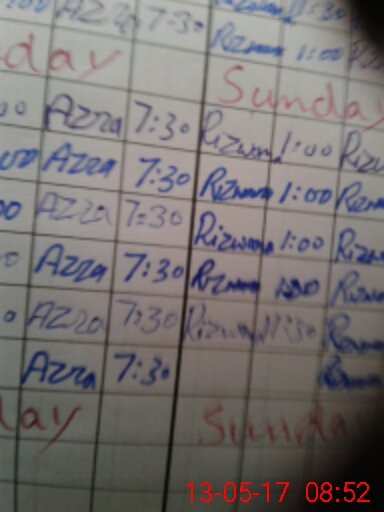 :00 Azra 7:30 11:30
Rizwan 1:00
day Sunday
00 Azra 7:30 Rizwan 1:00 Rizw
00 Azra 7:30 Rizwan 1:00
00 Azra 7:30 Rizwan 1:00 Rizwa
Azra 7:30 Rizwan 1:00 Rizwa
Azra 7:30 Rizwan 11:30 Rizwan
Azra 7:30 Rizwan
day Sunday
13-05-17 08:52